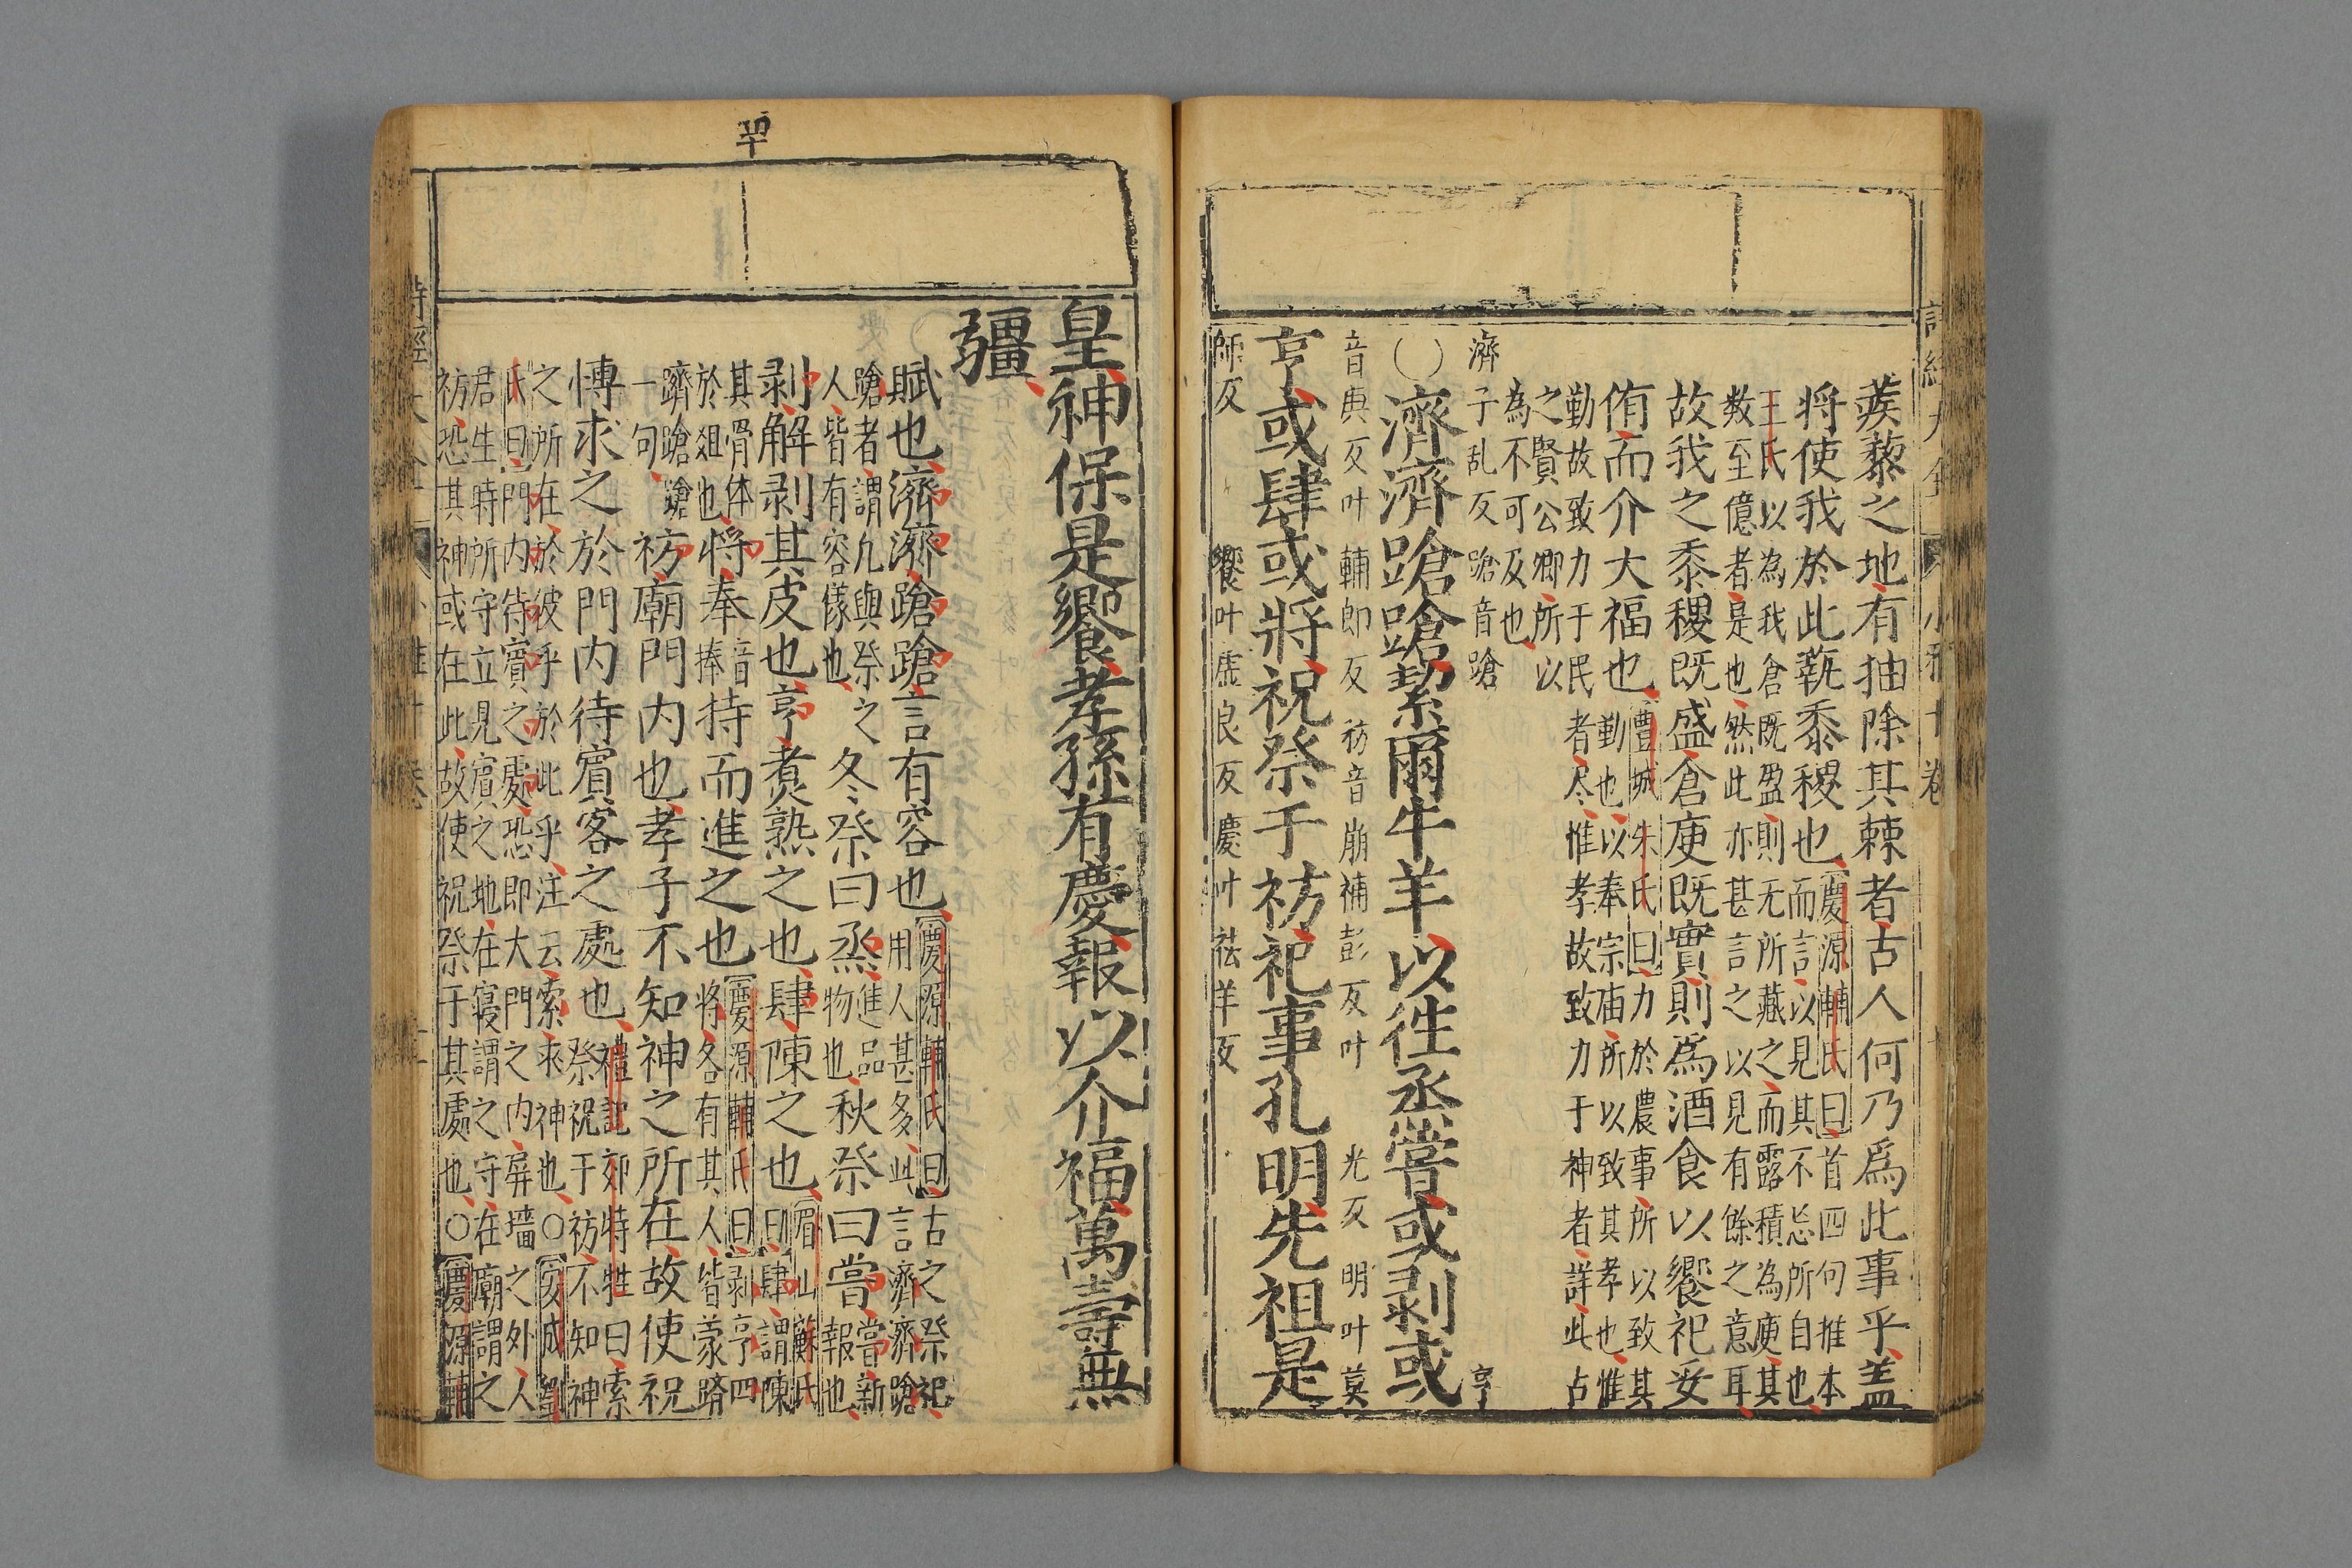 蒺藜之地有抽除其棘者古人何乃爲此事乎盖
将使我於此蓺黍稷也慶源輔氏曰首四句推本
而言以見其不忘所自也
王氏以為我倉既盈則无所藏之而露積為庾其
数至億者是也然此亦甚言之以見有餘之意耳
故我之黍稷既盛倉庾既實則爲酒食以饗祀妥
侑而介大福也豐城朱氏曰力於農事所以致其
勤也以奉宗庙所以致其孝也惟
勤故致力于民者尽惟孝故致力于神者詳此占
之賢公卿所以
為不可及也
濟子乱反蹌音蹌亨
〇濟濟蹌蹌絜爾牛羊以徃烝嘗或剥或
音庚反叶輔郎反祊音崩補彭反叶光反明叶莫
亨或肆或將祝祭于祊祀事孔明先祖是
師反饗叶虛良反慶叶祛羊反
皇神保是饗孝孫有慶報以介福萬壽無
疆
賦也濟濟蹌蹌言有容也慶源輔氏曰古之祭祀
用人甚多此言濟濟蹌
蹌者謂凡與祭之
人皆有容儀也冬祭曰烝進品物也秋祭曰嘗嘗新
報也
剥解剥其皮也亨煮熟之也肆陳之也眉山蘇氏
曰肆謂陳
其骨体
於俎也将奉音捧持而進之也慶源輔氏曰剥亨四
将各有其人皆蒙蹌
蹌蹌蹌
一句祊廟門内也孝子不知神之所在故使祝
博求之於門内待賓客之處也禮記郊特牲曰索
祭祝于祊不知神
之所在於彼乎於此乎注云索求神也〇安成劉
氏曰門内待賓之處恐即大門之内屏墻之外人
君生時所守立見賓之地在寝謂之守在廟謂之
祊恐其神或在此故使祝祭于其處也〇慶源輔